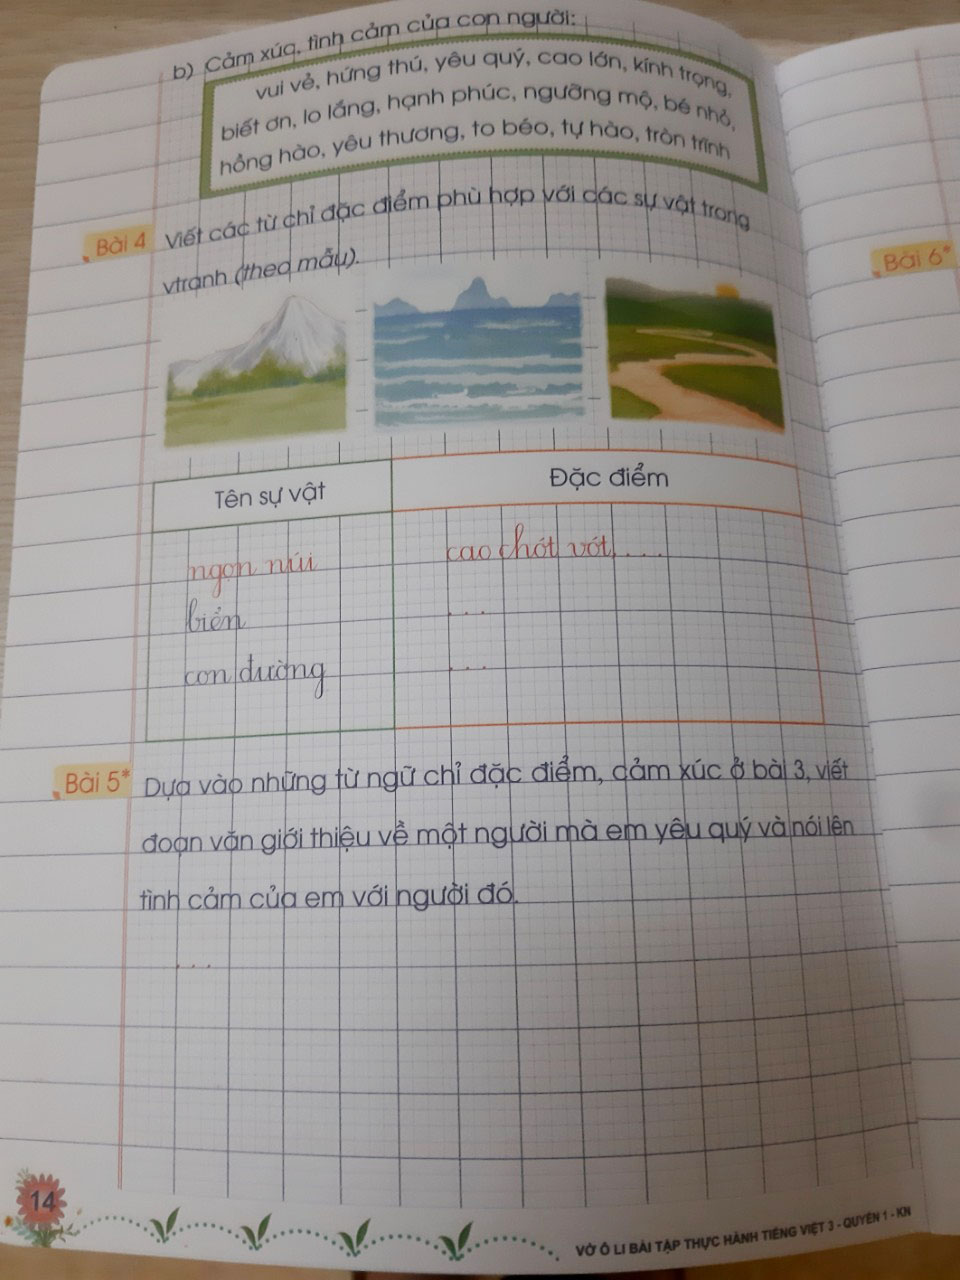 b) Cảm xúc, tình cảm của con người:
vui vẻ, hứng thú, yêu quý, cao lớn, kính trọng,
biết ơn, lo lắng, hạnh phúc, ngưỡng mộ, bé nhỏ,
hồng hào, yêu thương, to béo, tự hào, tròn trĩnh
Bài 4 Viết các từ chỉ đặc điểm phù hợp với các sự vật trong
vtranh (theo mẫu).
Tên sự vật Đặc điểm
ngọn núi cao chót vót, ...
biển ...
con đường ...
Bài 5* Dựa vào những từ ngữ chỉ đặc điểm, cảm xúc ở bài 3, viết
đoạn văn giới thiệu về một người mà em yêu quý và nói lên
tình cảm của em với người đó.
...
14
VỞ Ô LI BÀI TẬP THỰC HÀNH TIẾNG VIỆT 3 - QUYỂN 1 - KN
Bài 6*